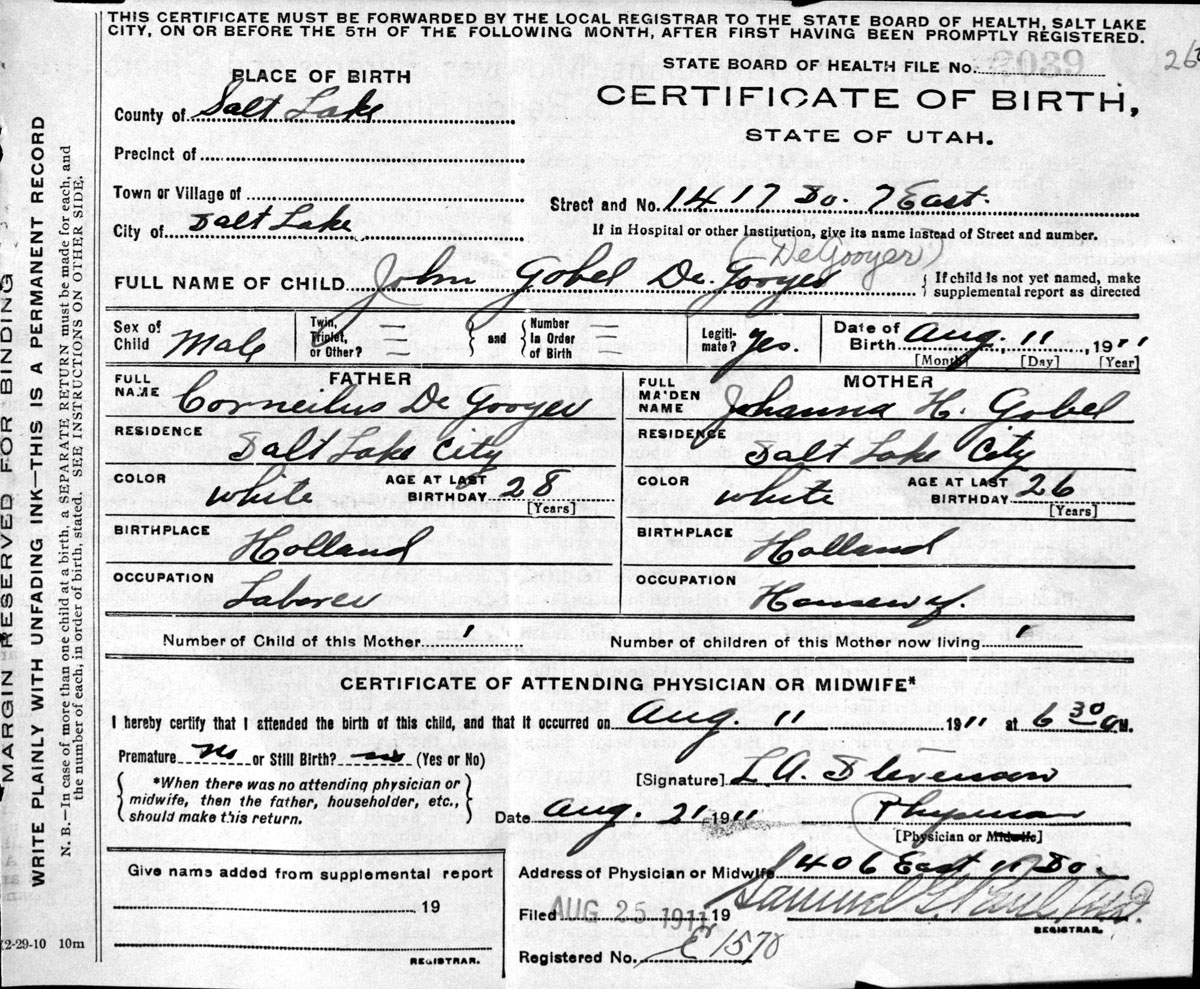 THIS CERTIFICATE MUST BE FORWARDED BY THE LOCAL REGISTRAR TO THE STATE BOARD OF HEALTH, SALT LAKE
CITY, ON OR BEFORE THE 5TH OF THE FOLLOWING MONTH, AFTER FIRST HAVING BEEN PROMPTLY REGISTERED.
PLACE OF BIRTH
STATE BOARD OF HEALTH FILE No.
County of Salt Lake
CERTIFICATE OF BIRTH,
STATE OF UTAH.
Precinct of
Town or Village of
Street and No. 1417 So. 7 East.
City of Salt Lake
If in Hospital or other Institution, give its name instead of Street and number.
(DeGooyer)
FULL NAME OF CHILD John Gobel De Gooyer
{ If child is not yet named, make
supplemental report as directed
Sex of Child Male
Twin, Triplet, or Other? —
and
Number In Order of Birth —
Legiti-mate? Yes.
Date of Birth Aug. 11, 1911
[Month] [Day] [Year]
FATHER
FULL NAME Corneilus De Gooyer
RESIDENCE Salt Lake City
COLOR white
AGE AT LAST BIRTHDAY 28
[Years]
BIRTHPLACE Holland
OCCUPATION Laborer
MOTHER
FULL MAIDEN NAME Johanna H. Gobel
RESIDENCE Salt Lake City
COLOR white
AGE AT LAST BIRTHDAY 26
[Years]
BIRTHPLACE Holland
OCCUPATION Housewf.
Number of Child of this Mother 1
Number of children of this Mother now living 1
CERTIFICATE OF ATTENDING PHYSICIAN OR MIDWIFE*
I hereby certify that I attended the birth of this child, and that it occurred on Aug. 11 1911 at 6 30 a M.
Premature No or Still Birth? no (Yes or No)
*When there was no attending physician or
midwife, then the father, householder, etc.,
should make this return.
[Signature] L A. Stevenson
Date Aug. 21 1911
Physician
[Physician or Midwife]
Give name added from supplemental report
19
REGISTRAR.
Address of Physician or Midwife 406 East 11 So
Filed AUG 25 1911 19
Samuel G. Paul
REGISTRAR.
Registered No. E 1570
2-29-10 10m
MARGIN RESERVED FOR BINDING
WRITE PLAINLY WITH UNFADING INK—THIS IS A PERMANENT RECORD
N. B.—In case of more than one child at a birth, a SEPARATE RETURN must be made for each, and
the number of each, in order of birth, stated. SEE INSTRUCTIONS ON OTHER SIDE.